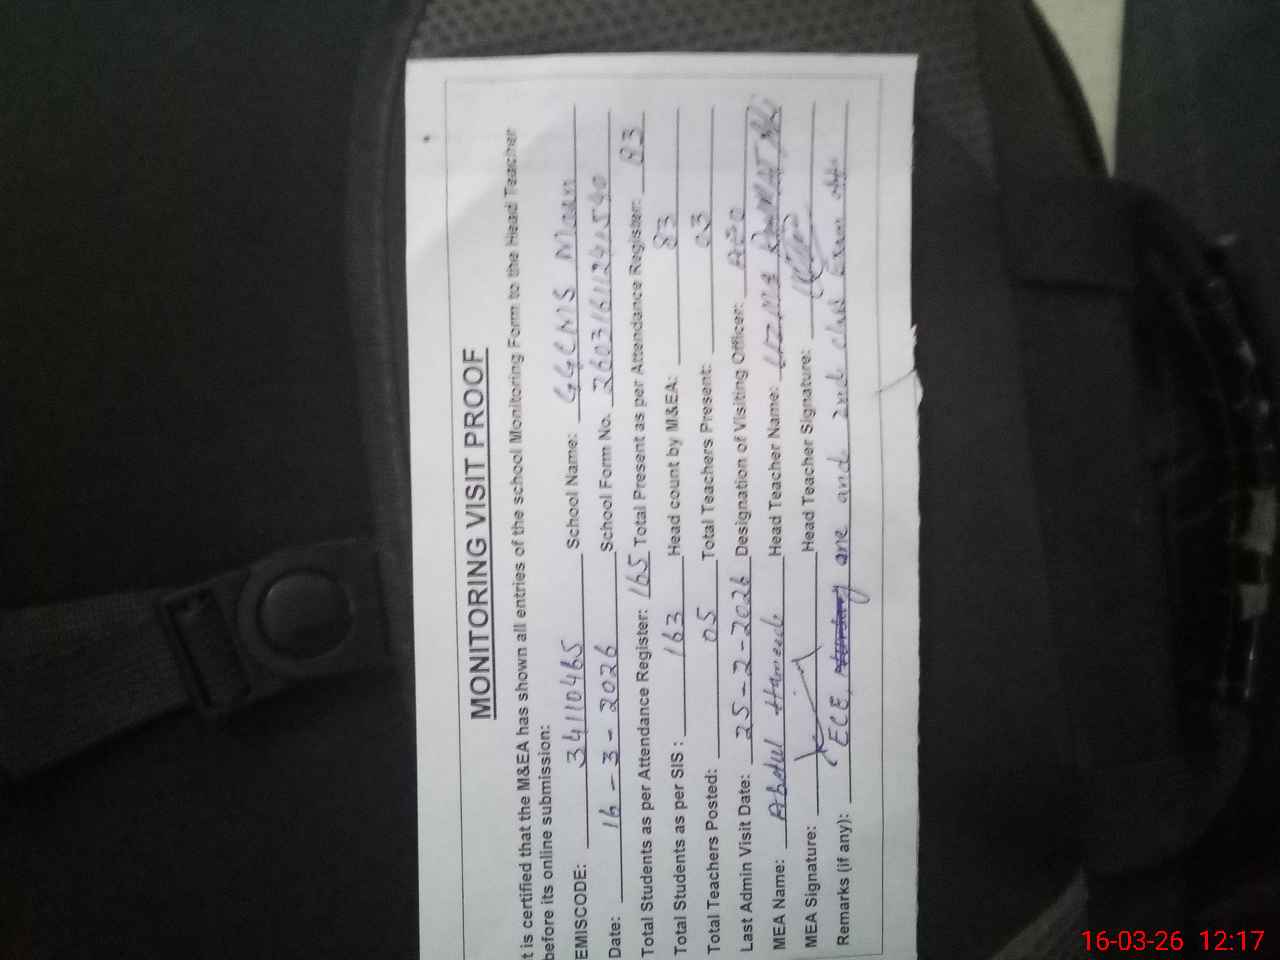 MONITORING VISIT PROOF
t is certified that the M&EA has shown all entries of the school Monitoring Form to the Head Teacher
before its online submission:
EMISCODE: 34110465 School Name: GGCMS Moan
Date: 16-3-2026 School Form No. 260316112410540
Total Students as per Attendance Register: 165 Total Present as per Attendance Register: 83
Total Students as per SIS: 163 Head count by M&EA: 83
Total Teachers Posted: 05 Total Teachers Present: 03
Last Admin Visit Date: 25-2-2026 Designation of Visiting Officer: AEO
MEA Name: Abdul Hameed Head Teacher Name:
MEA Signature: Head Teacher Signature:
Remarks (if any): ECE, one and 2nd class Exam off
16-03-26 12:17